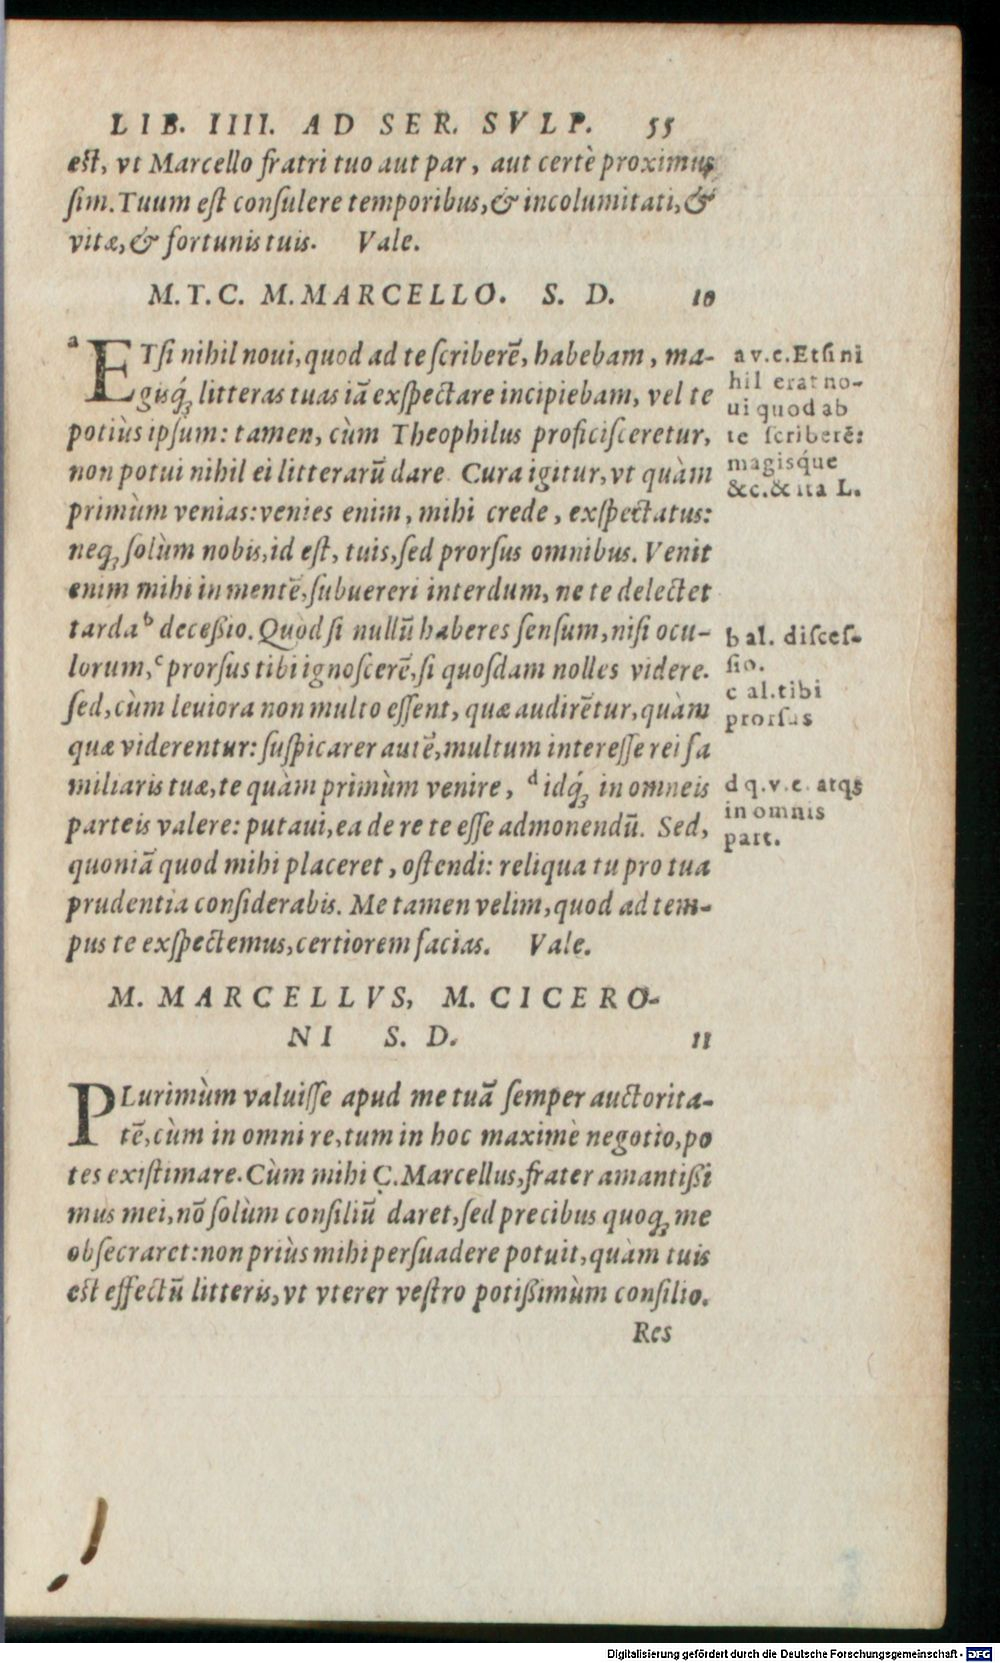 LIB. IIII. AD SER. SVLP. 55
est, vt Marcello fratri tuo aut par, aut certè proximus
ſim. Tuum eſt conſulere temporibus, & incolumitati, &
vitæ, & fortunis tuis. Vale.
M. T. C. M. MARCELLO. S. D. 10
a ETſi nihil noui, quod ad te ſcriberẽ, habebam, ma-
gisq́ꝫ litteras tuas iã exſpectare incipiebam, vel te
potiùs ipſum: tamen, cùm Theophilus proficiſceretur,
non potui nihil ei litterarũ dare. Cura igitur, vt quàm
primùm venias: venies enim, mihi crede, exſpectatus:
neqꝫ ſolùm nobis, id eſt, tuis, ſed prorſus omnibus. Venit
enim mihi in mentẽ, ſubuereri interdum, ne te delectet
tarda b deceßio. Quòd ſi nullũ haberes ſenſum, niſi ocu-
lorum, c prorſus tibi ignoſcerẽ, ſi quoſdam nolles videre.
ſed, cùm leuiora non multo eſſent, quæ audirẽtur, quàm
quæ viderentur: ſuſpicarer autẽ, multum intereſſe rei fa
miliaris tuæ, te quàm primùm venire, d idq́ꝫ in omneis
parteis valere: putaui, ea de re te eſſe admonendũ. Sed,
quoniã quod mihi placeret, oſtendi: reliqua tu pro tua
prudentia conſiderabis. Me tamen velim, quod ad tem-
pus te exſpectemus, certiorem facias. Vale.
a v. c. Etſi ni
hil erat no-
ui quod ab
te ſcriberẽ:
magisq́ue
&c. & ita L.
b al. diſceſ-
ſio.
c al. tibi
prorſus
d q. v. c. atqꝫ
in omnis
part.
M. MARCELLVS, M. CICERO-
NI S. D. 11
PLurimùm valuiſſe apud me tuã ſemper auctorita-
tẽ, cùm in omni re, tum in hoc maximè negotio, po
tes exiſtimare. Cùm mihi C. Marcellus, frater amantißi
mus mei, nõ ſolùm conſiliũ daret, ſed precibus quoqꝫ me
obſecraret: non priùs mihi perſuadere potuit, quàm tuis
eſt effectũ litteris, vt vterer veſtro potißimùm conſilio.
Res
Digitalisierung gefördert durch die Deutsche Forschungsgemeinschaft - DFG